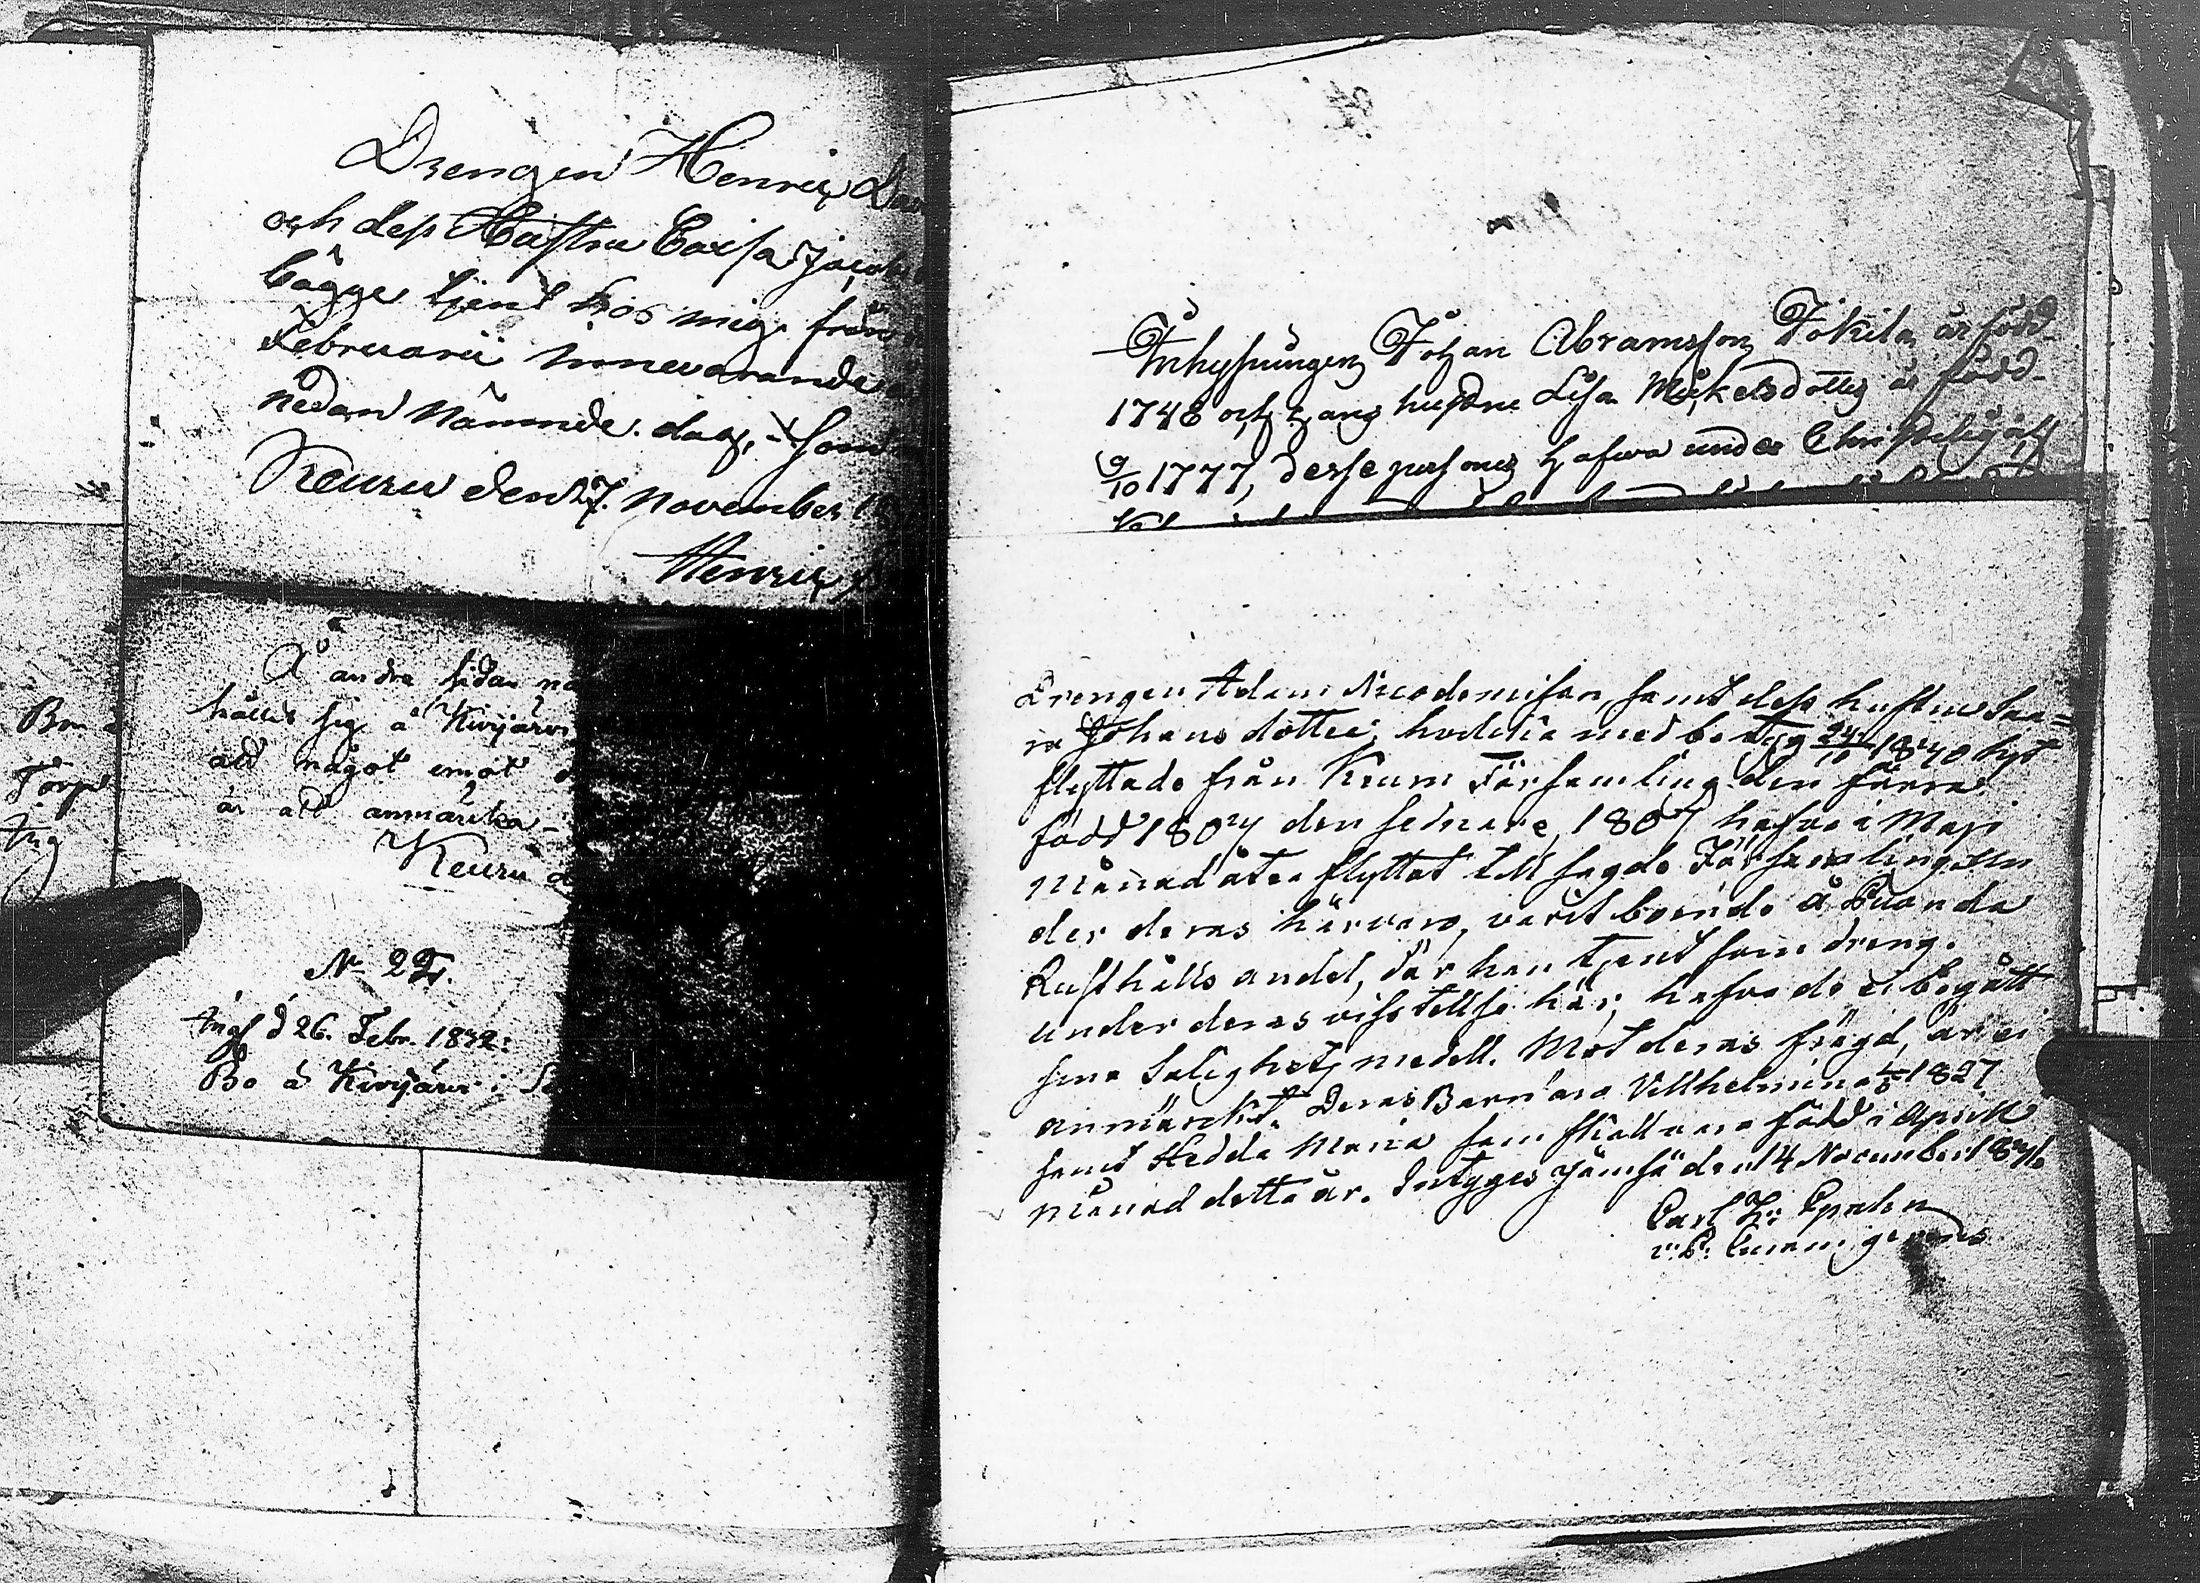 Drengen Henric
och dess Hustru Caisa Jacobs
bägge tjent hos mig från
Februarii innevarande
nedan Nämnde dag, som
Keuru den 27. November
Henric
Å andra sidan
hållit sig å Kivijärvi
att något emot
är att anmärka
Keuru
No 27.
Ingf d 26. Febr. 1832:
Bo å Kivijärvi i
Bo
Torp
Ing
Inhysningen Johan Abramsson Jokila är född
1748 och hans hustru Lisa Mickelsdotter är född
9/10 1777, desse personer hafva under
Drengen Adam Nicodemisson, samt dess hustru Saa=
ra Johansdotter, hvilka med betyg 24/10 1840 hyt
flyttade från Keuru Församling den förre
född 1804 den sednare, 1807 hafva i Maji
månad åter flyttat till sagde Församling. Un
der deras härvaro, varit boende å
Rusthålls andel, där han tjent som dreng.
under deras visstellse här, hafva de ei begått
sina Salighets medell. Mot deras frägd, är ei
anmärckt. Deras Barn äro Vilhelmina 1827
samt Hedda Maria som skall vara född i Aprill
månad detta år. Intyges Jämsä den 14 November
Carl